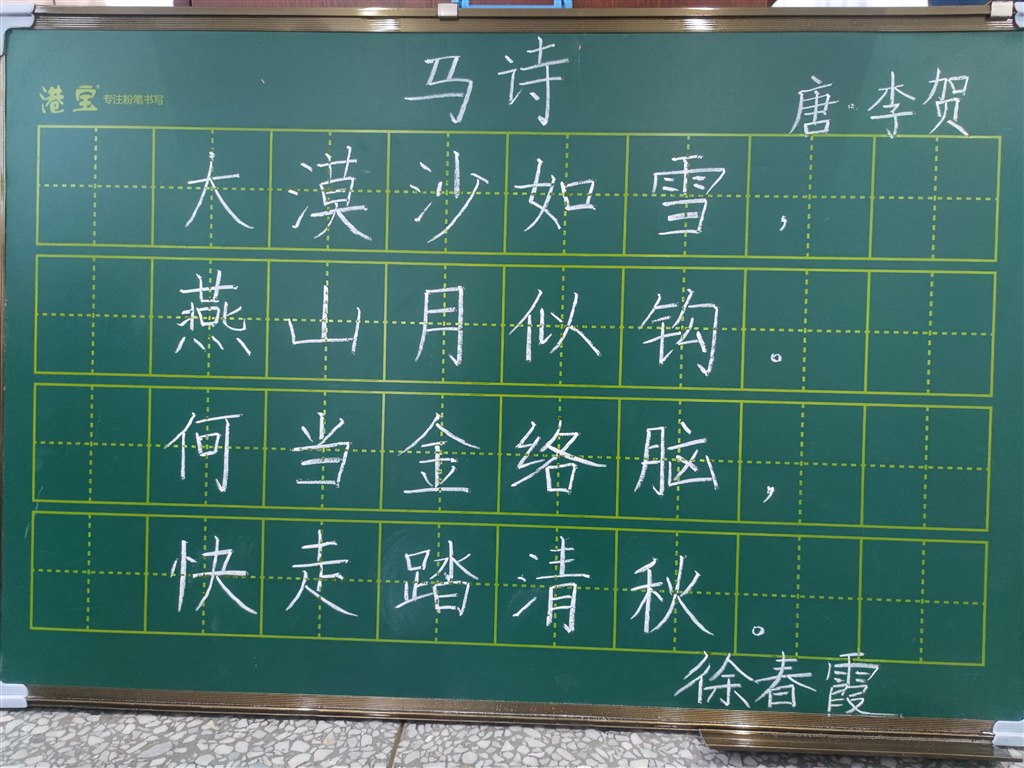 马诗
港宝 专注粉笔书写
唐·李贺
大漠沙如雪，
燕山月似钩。
何当金络脑，
快走踏清秋。
徐春霞